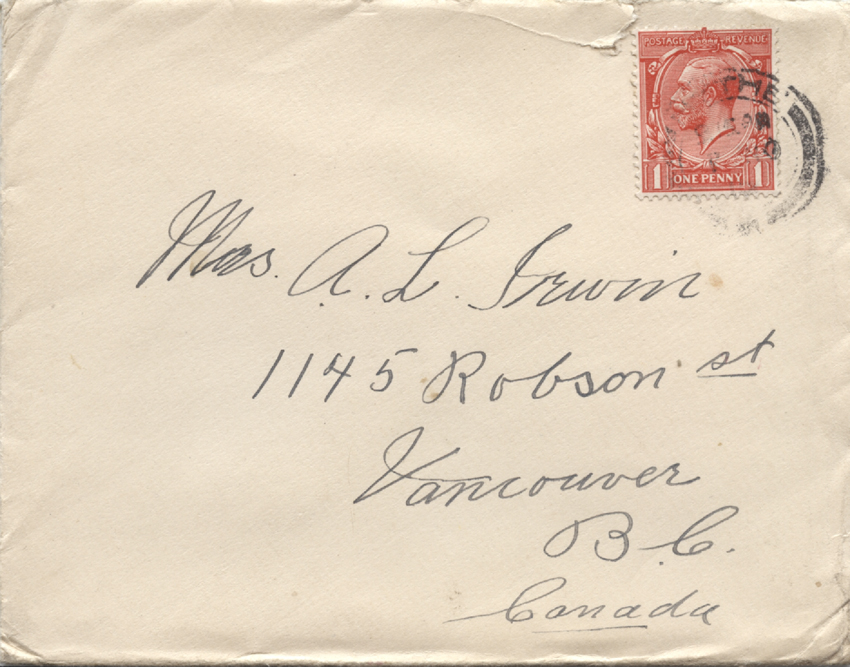 POSTAGE REVENUE
1 ONE PENNY 1
Mrs. A. L. Irwin
1145 Robson st
Vancouver
B.C.
Canada